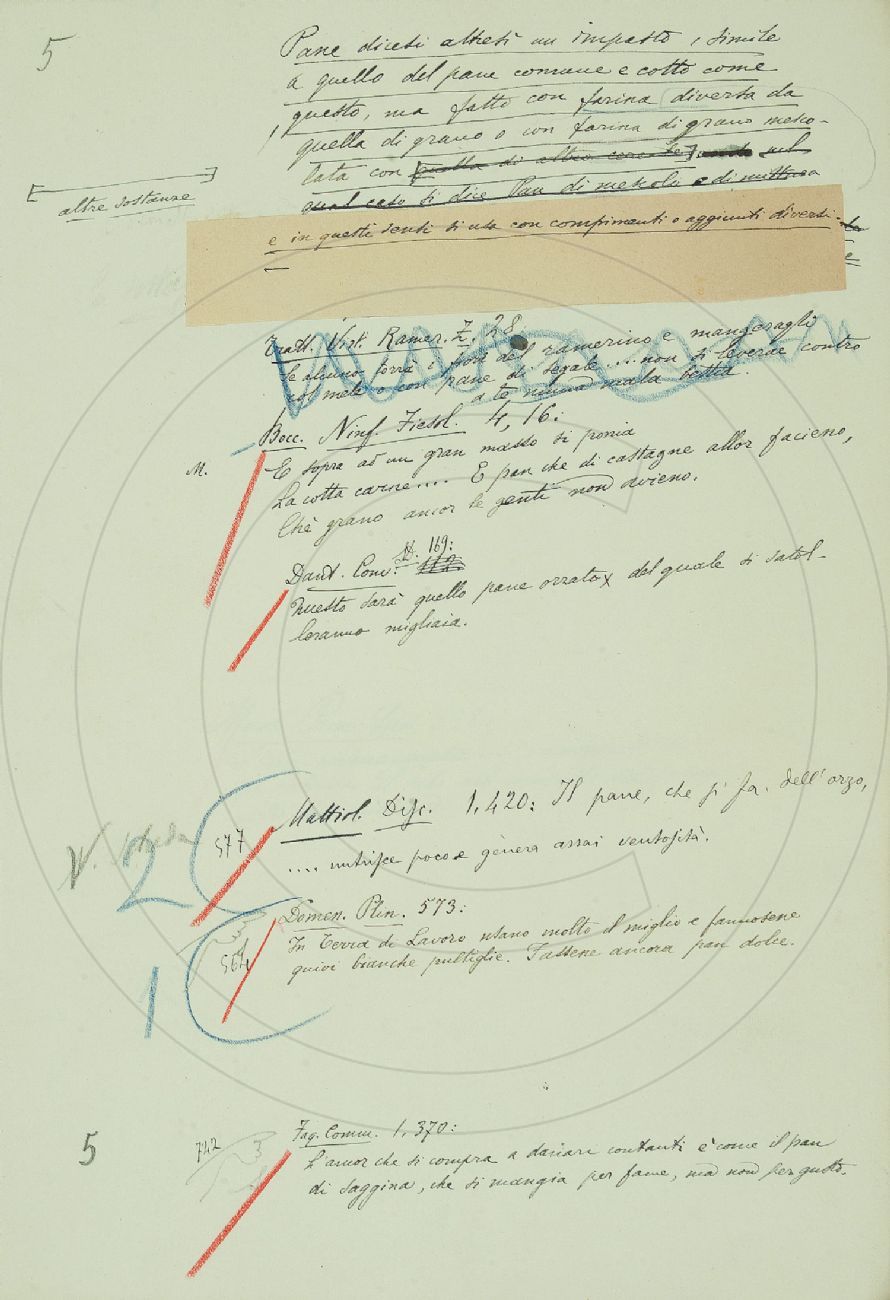 5
Pane dicesi altresì un impasto, simile
a quello del pane comune e cotto come
questo, ma fatto con farina diversa da
quella di grano o con farina di grano mesco-
lata con [quella di altro cereale] nel
altre sostanze
qual caso si dice Pan di mescolo e di mistura
e in questi sensi si usa con compimenti o aggiunti diversi.
Tratt. Virt. Ramer. Z. 28
Se alcuno torrà i fiori del ramerino e mangeragli
col mele o con pane di segale.... non si leverae contro
a te niuna mala bestia.
Bocc. Ninf. Fiesol. 4, 16:
M.
E sopra ad un gran masso si ponia
La cotta carne.... E pan che di castagne allor facieno,
Chè grano ancor le genti non avieno.
Dant. Conv. 169:
Questo sarà quello pane orzato del quale si satol-
leranno migliaia.
Mattiol. Disc. 1,420: Il pane, che si fa dell'orzo,
577
2
.... nutrisce poco e gènera assai ventosità.
Domen. Plin. 573:
In Terra di Lavoro usano molto il miglio e fannosene
564
quivi bianche pultiglie. Fassene ancora pan dolce.
1
Fag. Comm. 1,370:
5
742
3
L'amor che si compra a danari contanti è come il pan
di saggina, che si mangia per fame, ma non per gusto.